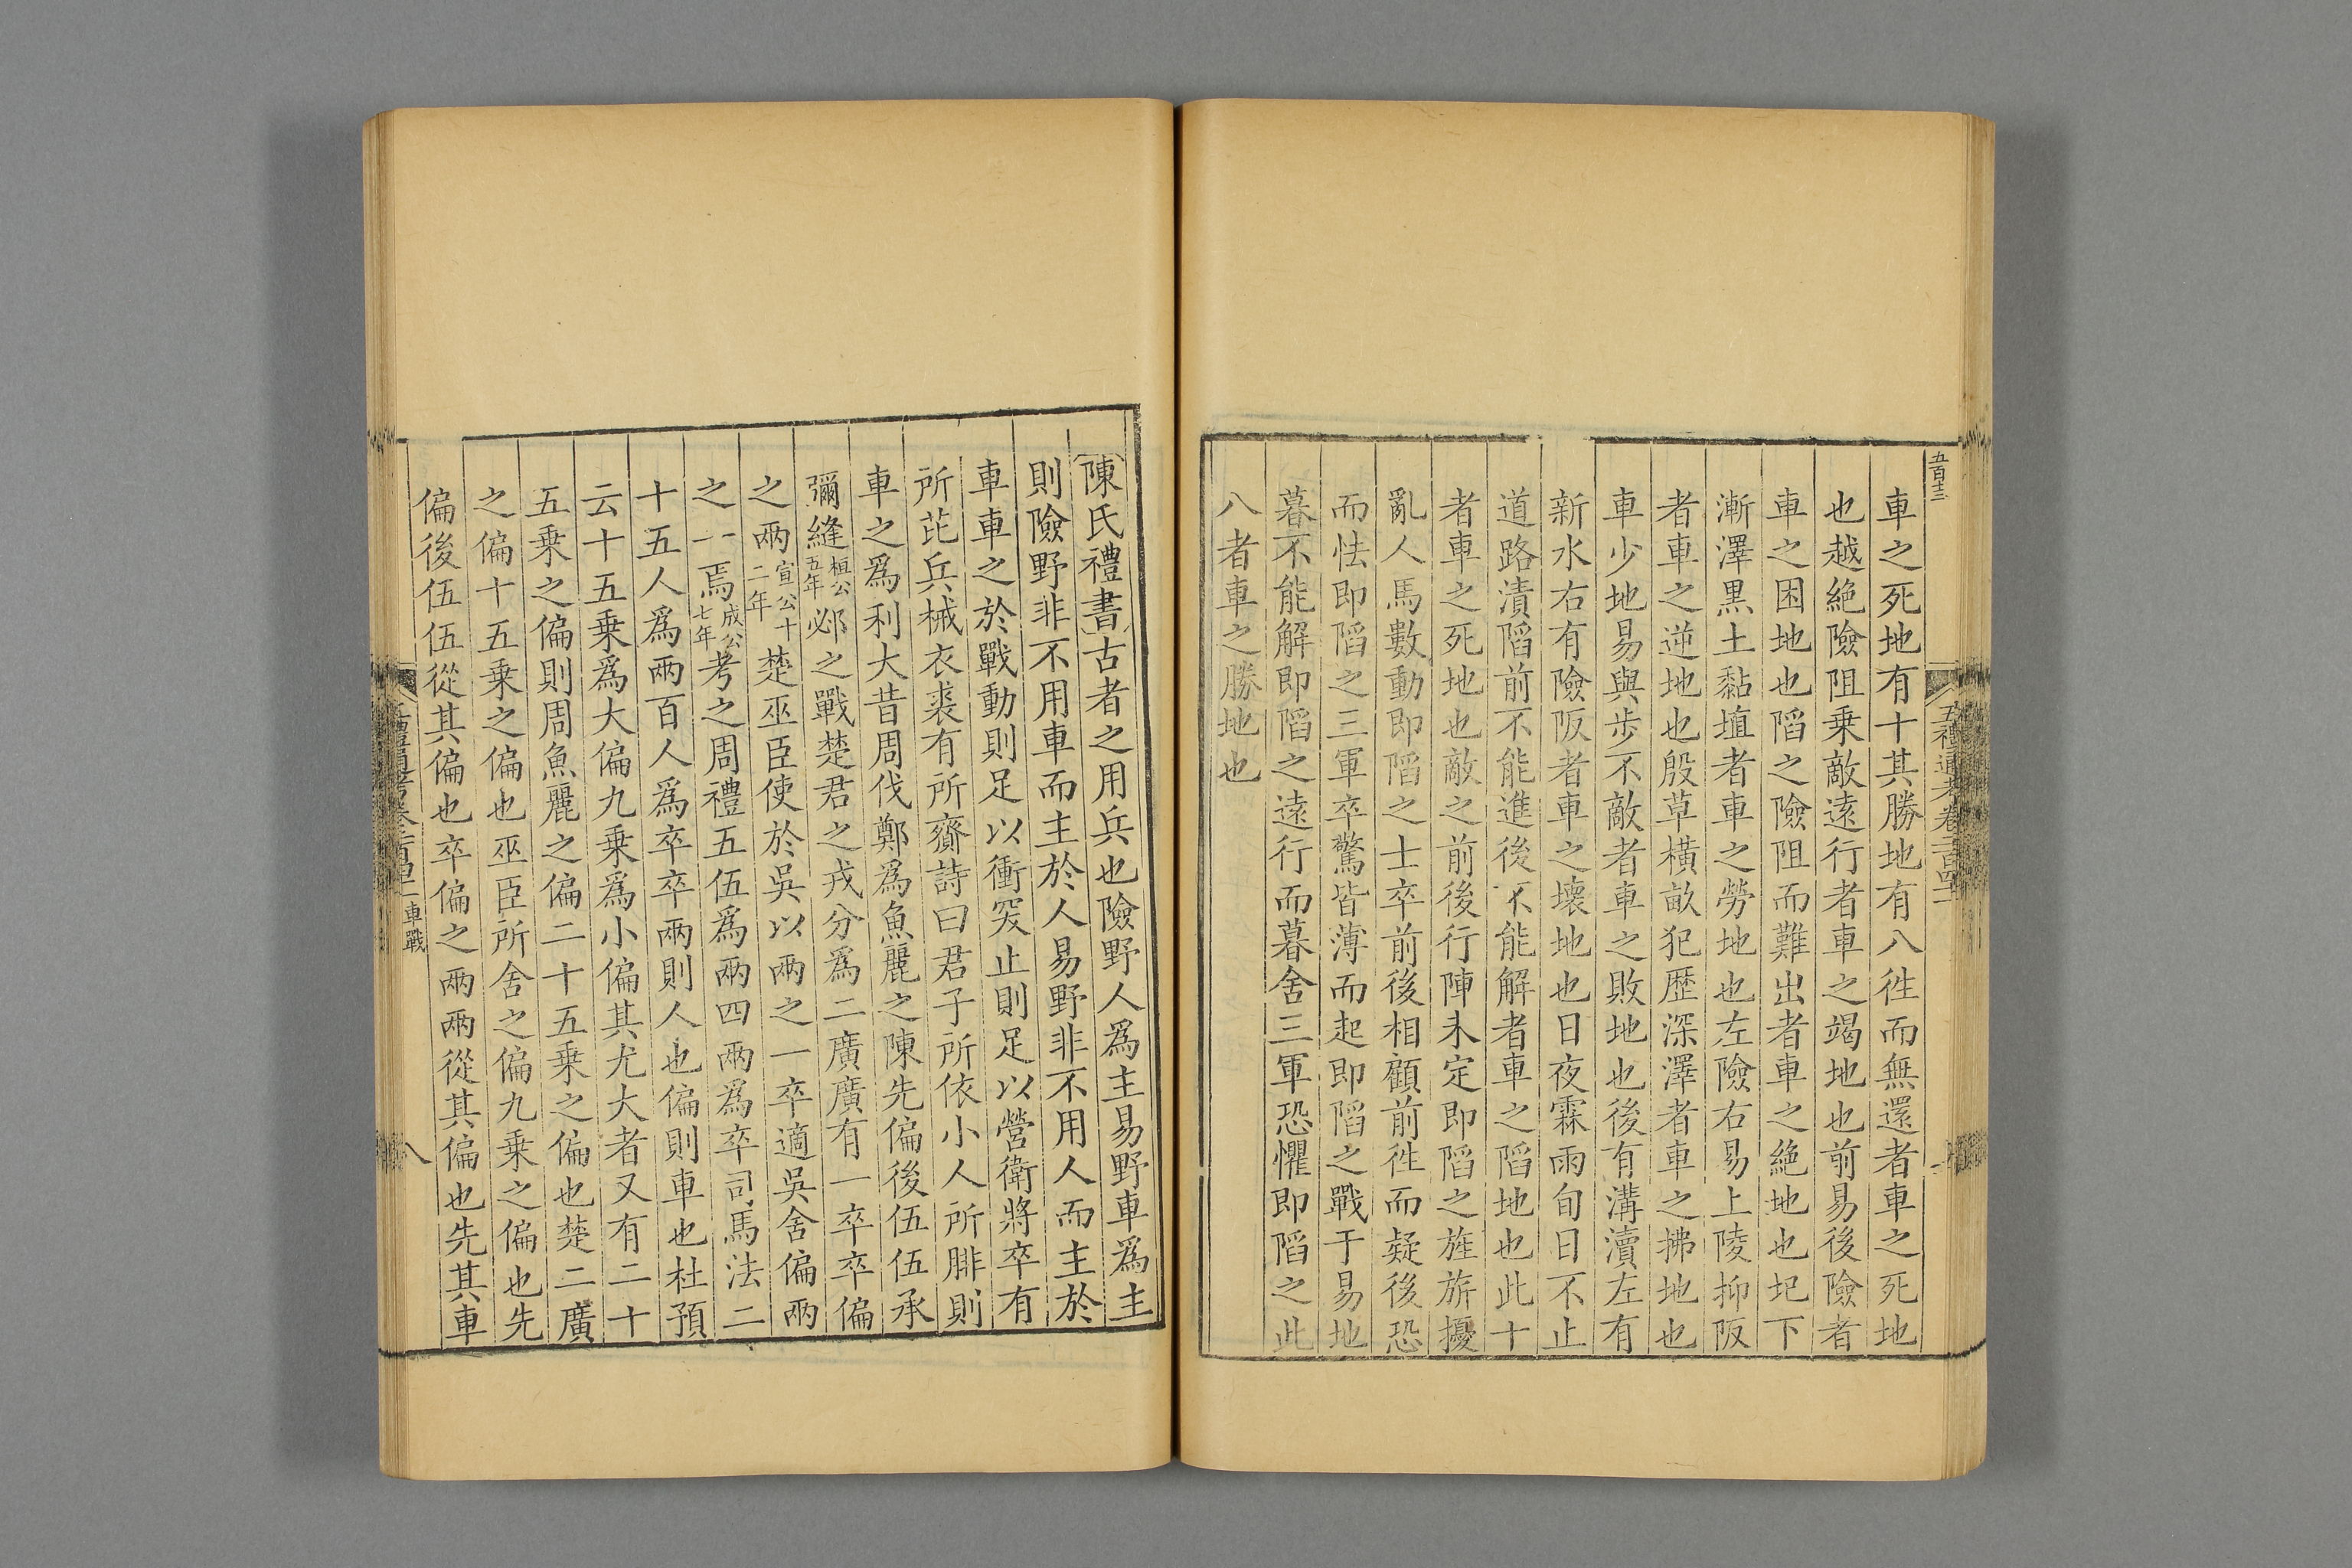 五百十三
五禮通考卷二百四十一
車之死地有十其勝地有八徃而無還者車之死地
也越絶險阻乗敵遠行者車之竭地也前易後險者
車之困地也陷之險阻而難出者車之絶地也圮下
漸澤黒土黏埴者車之勞地也左險右易上陵抑阪
者車之逆地也殷草橫畝犯歴深澤者車之拂地也
車少地易與步不敵者車之敗地也後有溝瀆左有
新水右有險阪者車之壊地也日夜霖雨旬日不止
道路潰陷前不能進後不能解者車之陷地也此十
者車之死地也敵之前後行陣未定即陷之旌旂擾
亂人馬數動即陷之士卒前後相顧前徃而疑後恐
而怯即陷之三軍卒驚皆薄而起即陷之戰于易地
暮不能解即陷之遠行而暮舍三軍恐懼即陷之此
八者車之勝地也
陳氏禮書古者之用兵也險野人爲主易野車爲主
則險野非不用車而主於人易野非不用人而主於
車車之於戰動則足以衝突止則足以營衛將卒有
所芘兵械衣裘有所齎詩曰君子所依小人所腓則
車之爲利大昔周伐鄭爲魚麗之陳先偏後伍伍承
彌縫桓公五年邲之戰楚君之戎分爲二廣廣有一卒卒偏
之兩宣公十二年楚巫臣使於吳以兩之一卒適吳舍偏兩
之一焉成公七年考之周禮五伍爲兩四兩爲卒司馬法二
十五人爲兩百人爲卒卒兩則人也偏則車也杜預
云十五乗爲大偏九乗爲小偏其尤大者又有二十
五乗之偏則周魚麗之偏二十五乗之偏也楚二廣
之偏十五乗之偏也巫臣所舍之偏九乗之偏也先
偏後伍伍從其偏也卒偏之兩兩從其偏也先其車
車戰
八